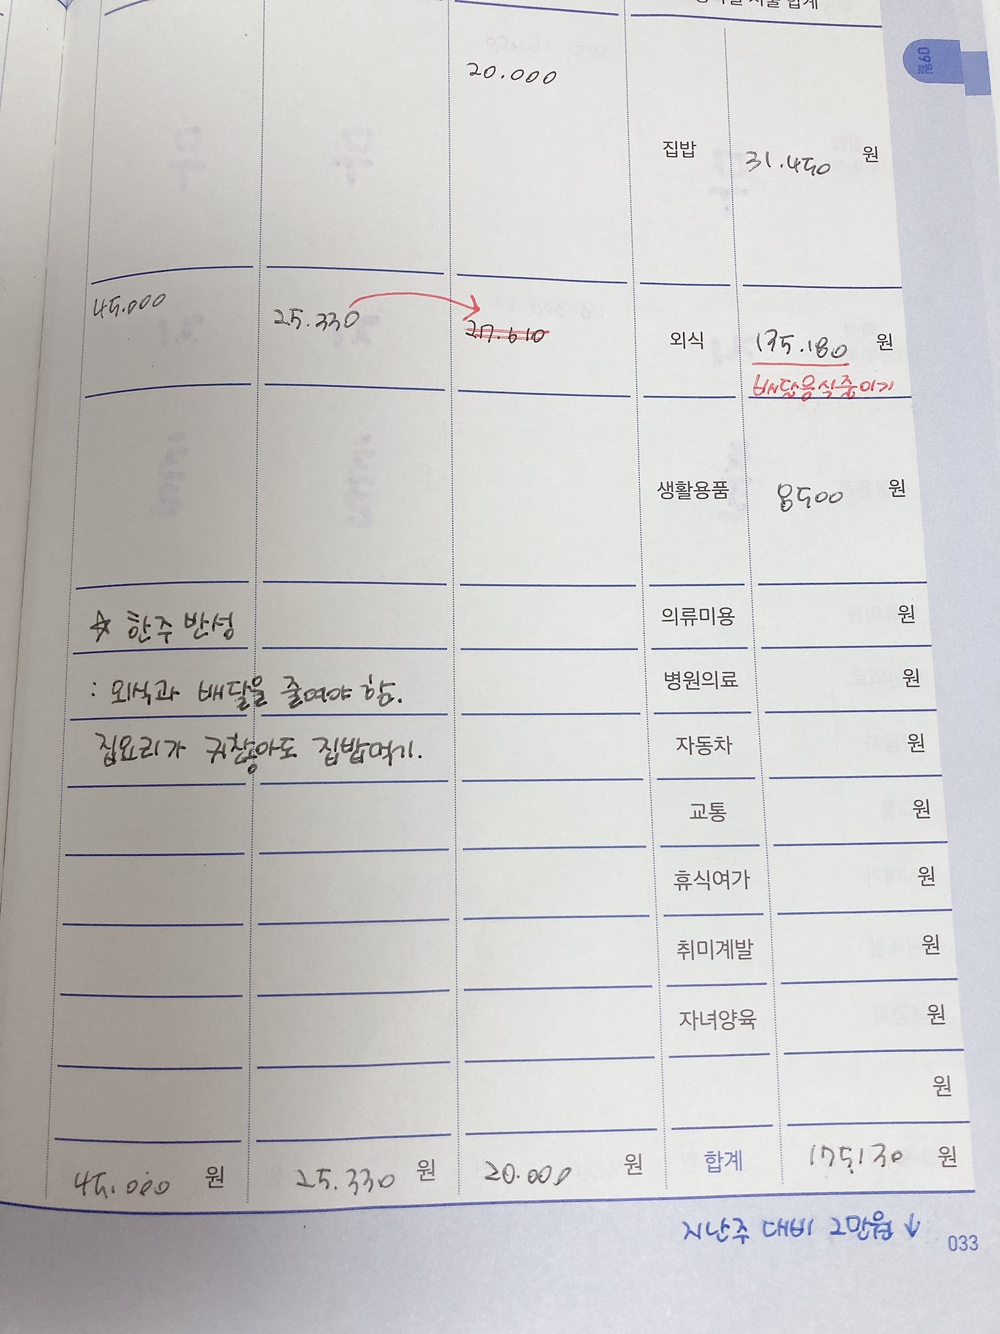 09월
20.000
집밥 31.450 원
45.000 25.330 27.610 외식 135.180 원
배달음식줄이기
생활용품 8500 원
☆ 한주 반성 의류미용 원
: 외식과 배달을 줄여야 함. 병원의료 원
집요리가 귀찮아도 집밥먹기. 자동차 원
교통 원
휴식여가 원
취미계발 원
자녀양육 원
원
45.000 원 25.330 원 20.000 원 합계 175130 원
지난주 대비 2만원↑
033